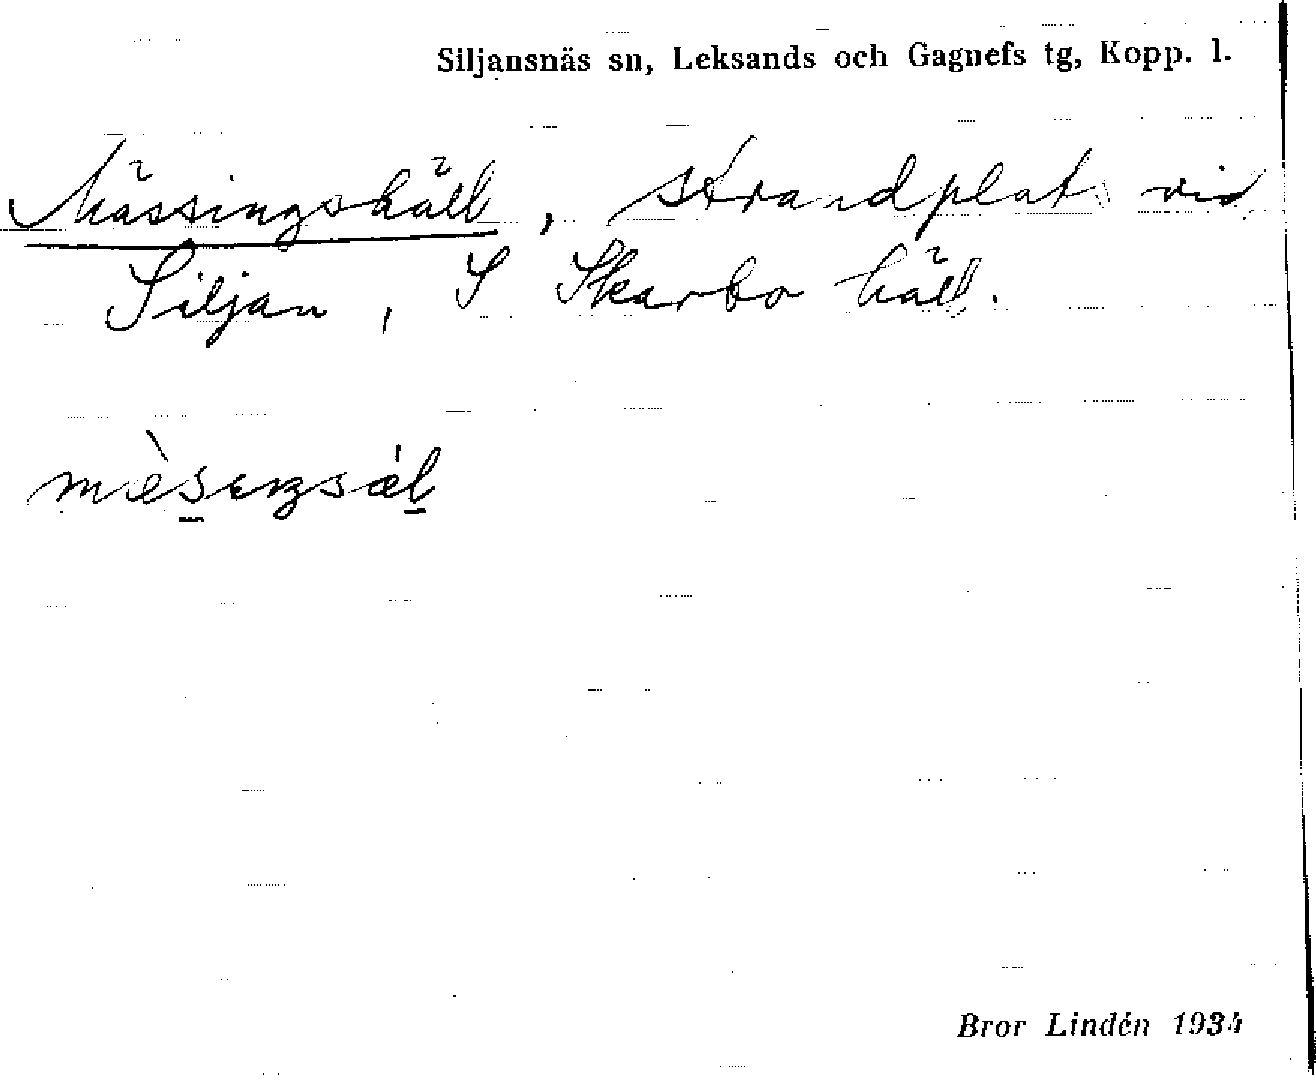 Siljansnäs sn, Leksands och Gagnefs tg, Kopp. l.
Mässingshäll, strandplats vid
Siljan, S Skarbo häll.
mèseŋsæ̀l
Bror Lindén 1934